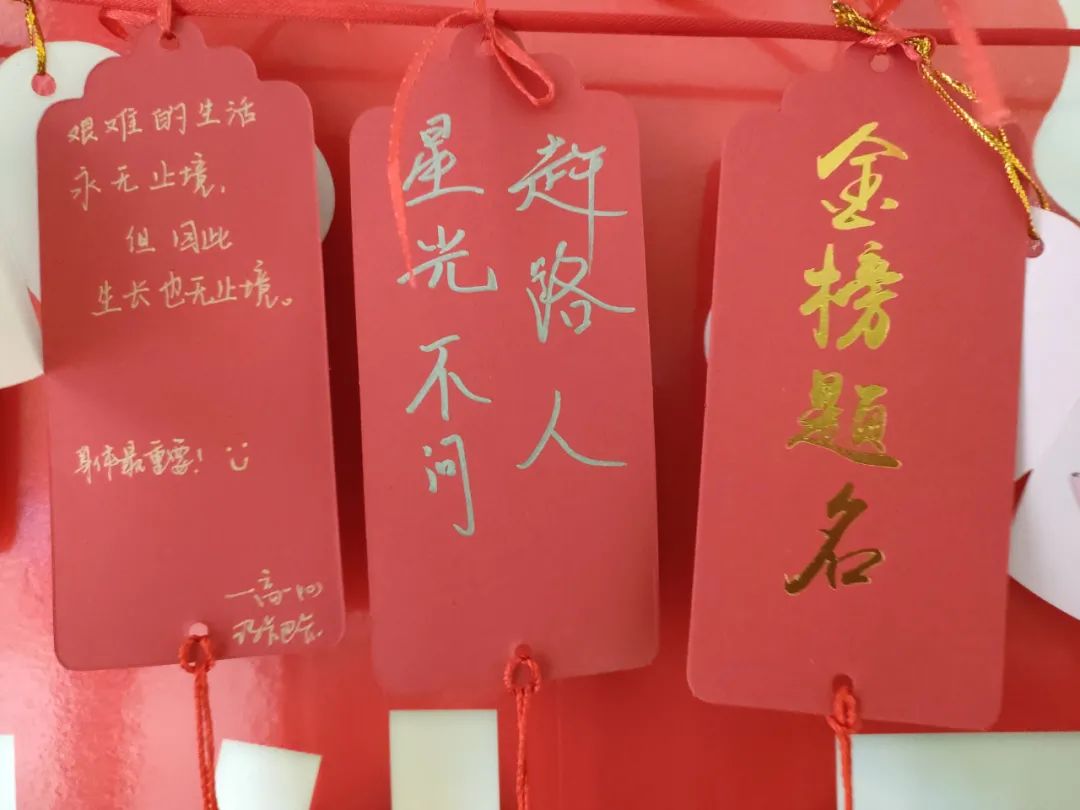 艰难的生活
永无止境,
但因此
生长也无止境。
身体最重要!
星光不问
赶路人
金榜题名